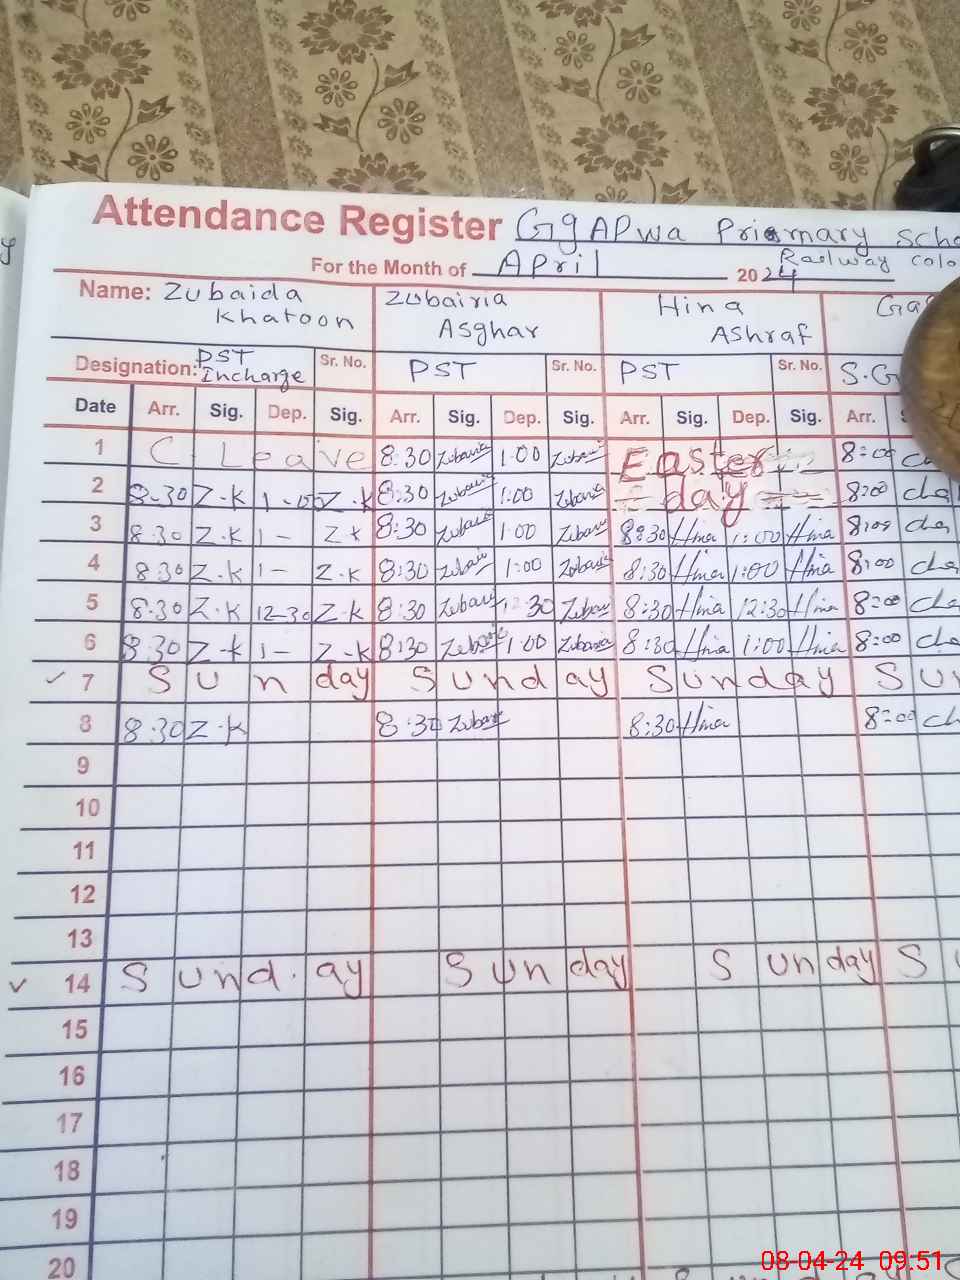 Attendance Register GG APWA Primary Scho
For the Month of April 2024 Railway Colo
Name: Zubaida Khatoon Zubairia Asghar Hina Ashraf
Designation: PST Incharge Sr. No. PST Sr. No. PST Sr. No. S.G
Date Arr. Sig. Dep. Sig. Arr. Sig. Dep. Sig. Arr. Sig. Dep. Sig. Arr.
1 C Leave 8:30 Zubairia 1:00 Zubairia Easter 8:00
2 8-30 Z-K 1-00 Z-K 8:30 Zubairia 1:00 Zubairia day 8:00
3 8.30 Z-K 1- Z K 8:30 Zubairia 1:00 Zubairia 8:30 Hina 1:00 Hina 8:00
4 8.30 Z-K 1- Z-K 8:30 Zubairia 1:00 Zubairia 8:30 Hina 1:00 Hina 8:00
5 8.30 Z-K 12-30 Z-K 8:30 Zubairia 12:30 Zubairia 8:30 Hina 12:30 Hina 8:00
6 8.30 Z-K 1- Z-K 8:30 Zubairia 1:00 Zubairia 8:30 Hina 1:00 Hina 8:00
7 Sunday Sunday Sunday Su
8 8.30 Z-K 8:30 Zubairia 8:30 Hina 8:00
9
10
11
12
13
14 Sund.ay Sunday Sunday S
15
16
17
18
19
20
08-04-24 09:51